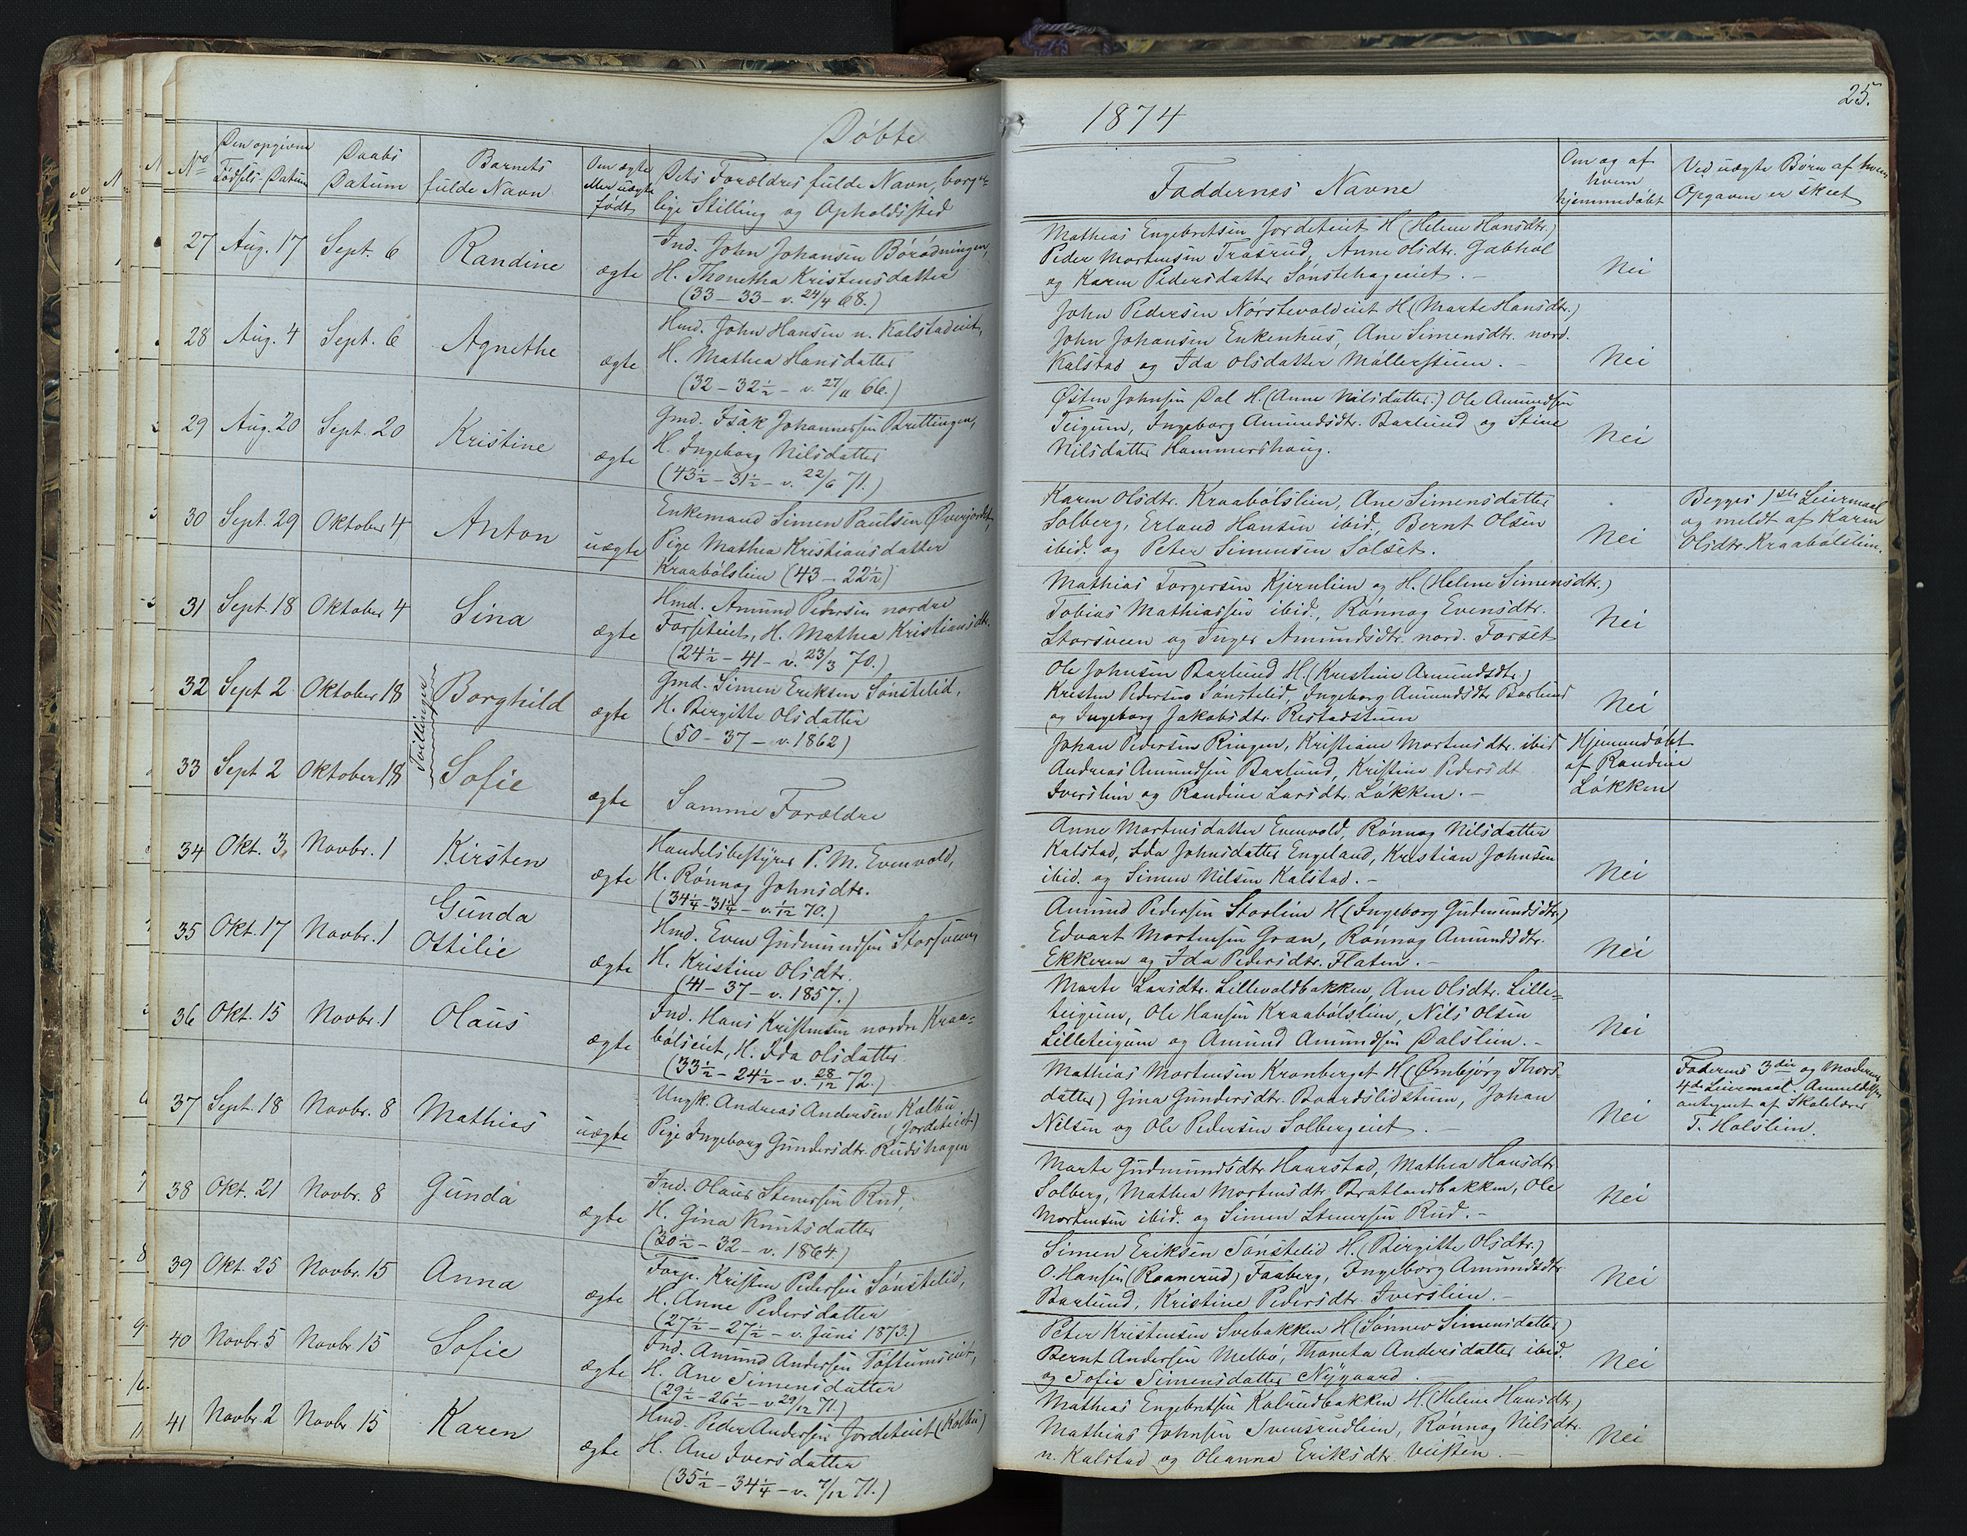 Døbte
No
Den opgivne Fødsels-Datum
Daabs Datum
Barnets fulde Navn
Om ægte eller uægte født
Dets Forældres fulde Navn, borgerlige Stilling og Opholdssted
27 Aug. 17 Sept. 6 Randine ægte
Ind. John Johansen Børødningen,
H. Thonetha Kristensdatter
(33 – 33 – v. 24/4 68.)
28 Aug. 4 Sept. 6 Agnethe ægte
Hmd. John Hansen n. Kalstadeiet,
H. Mathea Hansdatter
(32 – 32½ – v. 27/11 66.)
29 Aug. 20 Sept. 20 Kristine ægte
Gmd. Isak Johannessen Brettingen,
H. Ingeborg Nilsdatter
(43½ – 31½ – v. 22/6 71.)
30 Sept. 29 Oktober 4 Anton uægte
Enkemand Simen Paulsen Øverjordet,
Pige Mathea Kristiansdatter
Kraabølslien (43 – 22½)
31 Sept. 18 Oktober 4 Sina ægte
Hmd. Amund Pedersen nordre
Forseteiet, H. Mathea Kristiansdtr.
(24½ – 41 – v. 23/3 70.)
Tvillinger
32 Sept 2 Oktober 18 Borghild ægte
Gmd. Simen Eriksen Sønstelid,
H. Birgitte Olsdatter
(50 – 37 – v. 1862)
33 Sept 2 Oktober 18 Sofie ægte
Samme Forældre
34 Okt. 3. Novbr. 1 Kirsten ægte
Handelsbestyrer P. M. Evenvold,
H. Rønnog Johnsdtr.
(34¼ – 31¼ – v. 1/12 70.)
35 Okt. 17 Novbr. 1 Gunda
Ottilie ægte
Hmd. Even Gudmundsen Storsveen,
H. Kristine Olsdtr.
(41 – 37 – v. 1857.)
36 Okt. 15 Novbr. 1 Olaus ægte
Ind. Hans Kristensen nordre Kraa-
bølseiet, H. Ida Olsdatter
(33½ – 24½ – v. 28/12 72.)
37 Sept. 18 Novbr. 8 Mathias uægte
Ungk. Andreas Andersen Kalbu
(Jordeteiet)
Pige Ingeborg Gundersdtr. Rudshagen
38 Okt. 21 Novbr. 8 Gunda ægte
Ind. Olaus Stenersen Rud,
H. Gina Knutsdatter
(30½ – 32 – v. 1864.)
39 Okt. 25 Novbr. 15 Anna ægte
Forp. Kristen Pedersen Sønstelid,
H. Anne Pedersdatter
(27½ – 27½ – v. Juni 1873.)
40 Novbr. 5 Novbr. 15 Sofie ægte
Ind. Amund Andersen Toftumseiet,
H. Ane Simensdatter
(29½ – 26½ – v. 29/12 71.)
41 Novbr 2 Novbr 15 Karen ægte
Hmd. Peder Andersen Jordeteiet (Kolbu)
H. Ane Iversdatter
(35½ – 34¼ – v. 7/12 71.)
1874
25.
Faddernes Navne
Om og af hvem hjemmedøbt
Ved uægte Børn af hvem Opgaven er skeet
Mathias Engebretsen Jordeteiet H (Helene Hansdtr.)
Peder Mortensen Trøsrud, Anne Olsdtr. Gabhol
og Karen Pedersdatter Sønstehageeiet. –
Nei
John Pedersen Nørstevoldeiet H (Marte Hansdtr.)
John Johansen Enkenhus, Ane Simensdtr. nord.
Kalstad og Ida Olsdatter Møllerstuen. –
Nei
Østen Johnsen Dal H. (Anne Nilsdatter.) Ole Amundsen
Teigum, Ingeborg Amundsdtr. Barlund og Stine
Nilsdatter Hammershaug.
Nei
Karen Olsdtr. Kraabølslien, Ane Simensdatter
Solberg, Erland Hansen ibid, Bernt Olsen
ibid. og Peter Simensen Sølset.
Nei
Begges 1ste Leiermaal
og meldt af Karen
Olsdtr. Kraabølslien.
Mathias Torgersen Kjernlien og H. (Helene Simensdtr.)
Tobias Mathiassen ibid., Rønnog Evensdtr.
Storsveen og Inger Amundsdtr. nord. Forset
Nei
Ole Johnsen Barlund H. (Kristine Amundsdtr)
Kristen Pedersen Sønstelid, Ingeborg Amundsdtr Barlund
og Ingeborg Jakobsdtr. Ristadstuen
Nei
Johan Pedersen Ringen, Kristiane Mortensdtr. ibid
Andreas Amundsen Barlund, Kristine Pedersdt
Iverslien og Randine Larsdtr. Løkken. –
Hjemmedøbt
af Randine
Løkken
Anne Mortensdatter Evenvold, Rønnog Nilsdatter
Kalstad, Ida Johnsdatter Engeland, Kristian Johnsen
ibid. og Simen Nilsen Kalstad. –
Nei
Amund Pedersen Storlien H (Ingeborg Gudmundsdtr.)
Edvart Mortensen Gran, Rønnog Amundsdtr.
Ekkeren og Ida Pedersdtr. Flaten. –
Nei
Marte Larsdtr. Lillevoldbakken, Ane Olsdtr. Lille-
teigum, Ole Hansen Kraabølslien, Nils Olsen
Lilleteigum og Amund Amundsen Dalslien. –
Nei
Mathias Mortensen Kronberget H (Ømbjørg Thors-
datter) Gina Gundersdtr. Baardslidstuen, Johan
Nilsen og Ole Pedersen Solbergeiet
Nei
Faderens 3die og Moderens
4de Leiermaal. Anmeldelsen
antegnet af Skolelærer
T. Holslien.
Marte Gudmundsdtr. Haarstad, Mathea Hansdtr
Solberg, Mathea Mortensdtr Bratlandbakken, Ole
Mortensen ibid. og Simen Stenersen Rud. –
Nei
Simen Eriksen Sønstelid H. (Birgitte Olsdtr.)
O. Hansen (Raanerud) Faaberg, Ingeborg Amundsdtr
Barlund, Kristine Pedersdtr. Iverslien. –
Nei
Peter Kristensen Svebakken H (Sønnev Simensdatter)
Bernt Andersen Melbø, Thoneta Andersdatter ibid.
og Sofie Simensdatter Nygaard.
Nei
Mathias Engebretsen Kalrudbakken H. (Helene Hansdtr)
Mathias Johnsen Svensrudlien, Rønnog Nilsdtr.
n. Kalstad og Oleanna Eriksdtr. Veisten. –
Nei